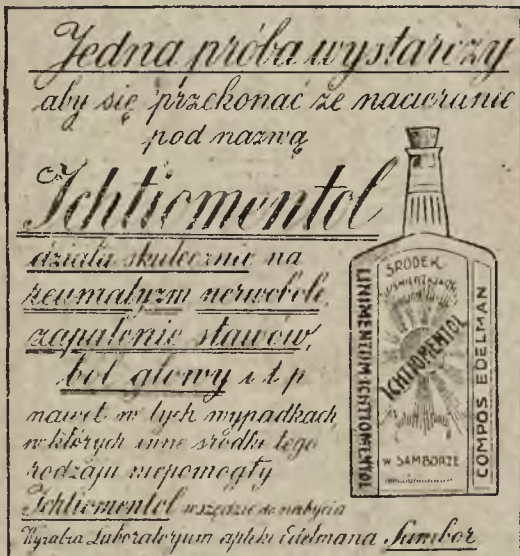 Jedna próba wystarczy
aby się przekonać że nacieranie
pod nazwą
Ichtiomentol
działa skutecznie na
reumatyzm nerwobole,
zapalenie stawów,
ból głowy i t.p
nawet w tych wypadkach,
w których inne środki tego
rodzaju niepomogły
Ichtiomentol wszędzie do nabycia
Wyrabia Laboratoryum apteki Edelmana Sambor
ŚRODEK
UŚMIERZAJĄCY
LINIMENTUM ICHTIOMENTOL
ICHTIOMENTOL
COMPOS EDELMAN
w SAMBORZE